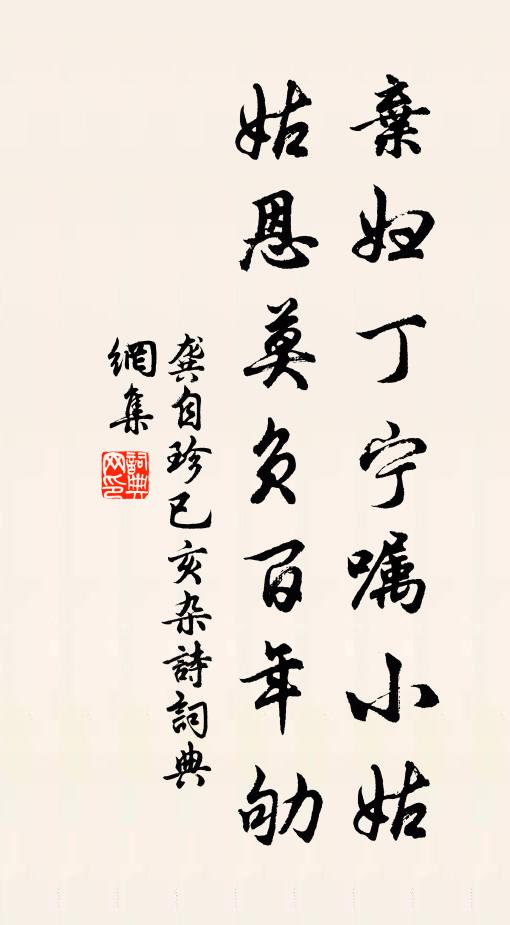 棄妇丁宁嘱小姑
姑恩莫负百年劬
龚自珍已亥杂詩詞典
網集
詞典
网印